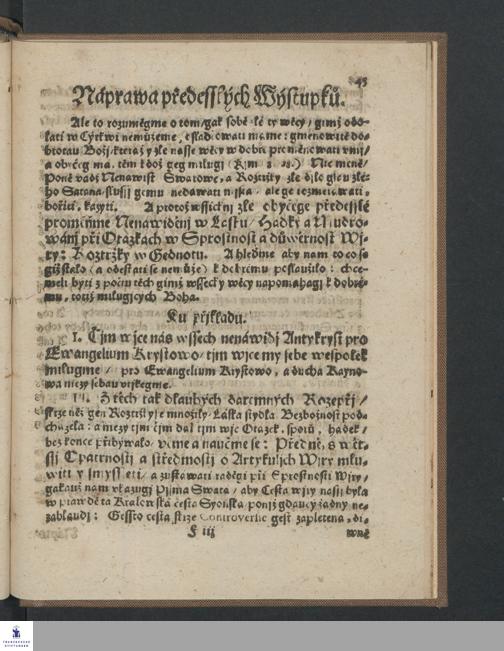 45
Náprawa předesslých Wýstupků.
Ale to rozuměgme o tom/gak sobě ty wěcy/ gimž odo-
lati w Cýrkwi nemůžeme, osladiowati máme: gmenowitě do-
brotau Boží/kteráž y zlé nasse wěcy w dobré proměňowati umj/
a obyčeg má, těm kdož geg milugj (Řjm 8. 28.) Nic méně/
Poně wadž Nenawist, Swárowe, a Roztržky zlé djlo gsau zlé-
ho Satana/slussj gemu nedáwati mjsta, ale ge rozmetáwati,
bořiti, kaziti. A protož wssickni zlé obyčege předesslé
proměňme Nenáwiděnj w Lásku/ Hádky a Mudro-
wánj při Otázkách w Sprostnost a důwěrnost Wj-
ry: Roztržky w Gednotu. A hleďme aby nám to co se
giž stalo (a odestáti se nemůže) k dobrému poslaužilo: chce-
meli byti z počtu těch gimž wssecky wěcy napomáhagj k dobré-
mu, totiž milugjcych Boha.
Ku přjkladu.
I. Čjm wjce nás wssech nenáwidj Antykryst pro
Ewangelium Krystowo/ tjm wjce my sebe wespolek
milugme/ pro Ewangelium Krystowo, a ducha Kayno-
wa mezy sebau nežiwme.
II. Z těch tak dlauhých daremných Rozepřj/
skrze něž gen Roztržky se množily/ Láska stydla, Bezbožnost pod-
cházela: a mezy tjm čjm dál tjm wjc Otázek, sporů, hádek/
bez konce přibýwalo/ učme a naučme se: Předně, s wět-
ssj Opatrnostj a středmostj o Artykuljch Wjry mlu-
witi y smyssleti/ a zůstáwati raděgi při Sprostnosti Wjry/
gakauž nám ukazugj Pjsma Swatá/ aby Cesta wjry nassj byla
w prawdě ta Králowská cesta Syonská/ po njž gdaucý žádný ne-
zablaudj: Gessto cesta skrze Controversie gest zapletená, di-
F iij wně
FRANCKESCHE STIFTUNGEN